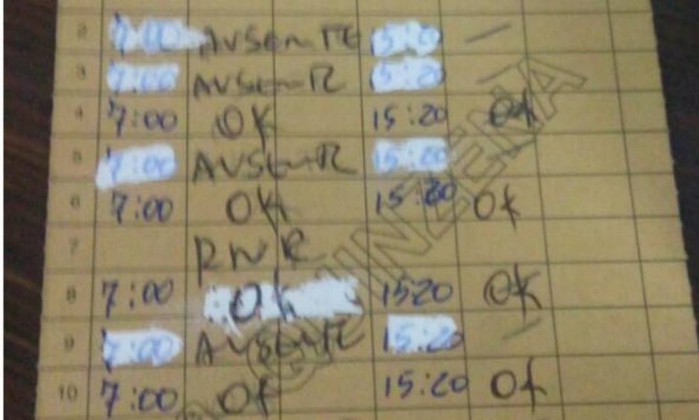 2 7:00 AUSENTE 15:20 —
3 7:00 AUSENTE 15:20 —
4 7:00 OK 15:20 OK
5 7:00 AUSENTE 15:20
6 7:00 OK 15:20 OK
7 RNR
8 7:00 OK 1520 OK
9 7:00 AUSENTE 15:20 —
10 7:00 OK 15:20 OK
QUINZENA